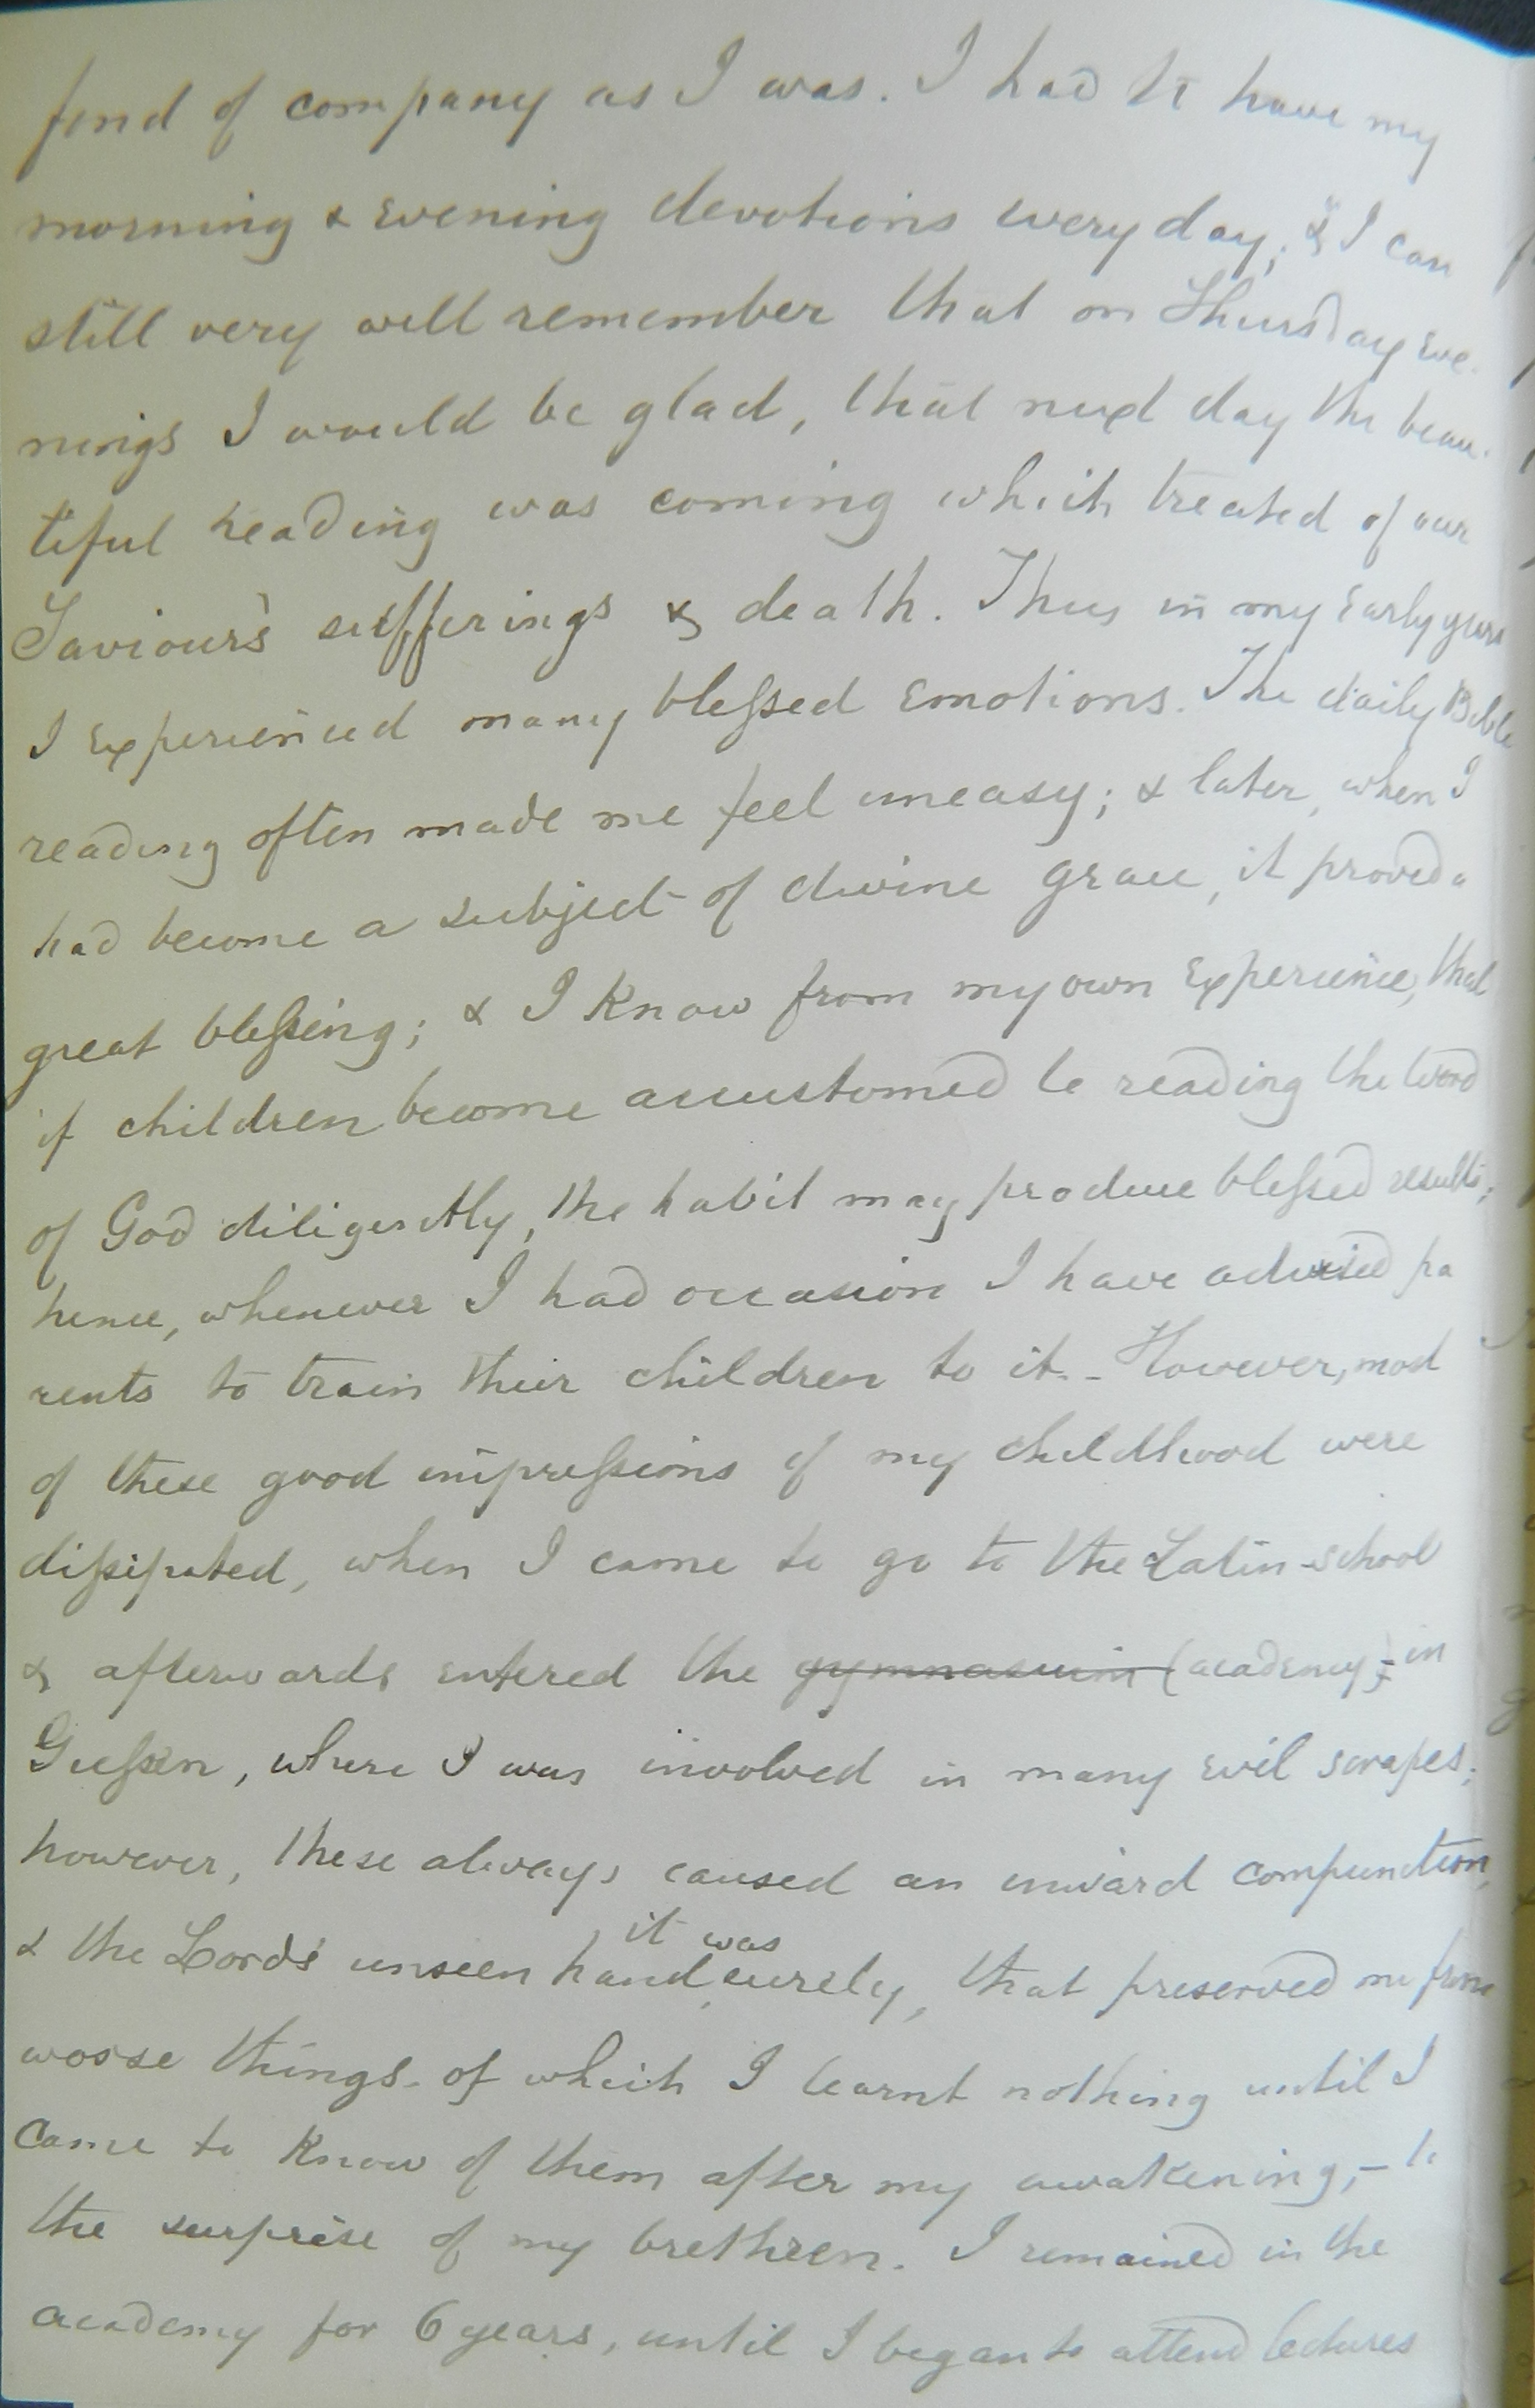 fond of company as I was. I had to have my
morning & evening devotions every day; & I can
still very well remember that on Thursday eve-
nings I would be glad, that next day the beau-
tiful reading was coming which treated of our
Saviour's sufferings & death. Thus in my early years
I experienced many blessed emotions. The daily Bible
reading often made me feel uneasy; & later, when I
had become a subject of divine grace, it proved a
great blessing; & I know from my own experience, that
if children become accustomed to reading the Word
of God diligently, the habit may produce blessed results;
hence, whenever I had occasion I have advised pa
rents to train their children to it. - However, most
of these good impressions of my childhood were
dissipated, when I came to go to the Latin-school
& afterwards entered the gymnasium (academy) in
Giessen, where I was involved in many evil scrapes;
however, these always caused an inward compunction,
& the Lord's unseen hand it was surely, that preserved me from
worse things - of which I learnt nothing until I
came to know of them after my awakening, - to
the surprise of my brethren. I remained in the
academy for 6 years, until I began to attend lectures